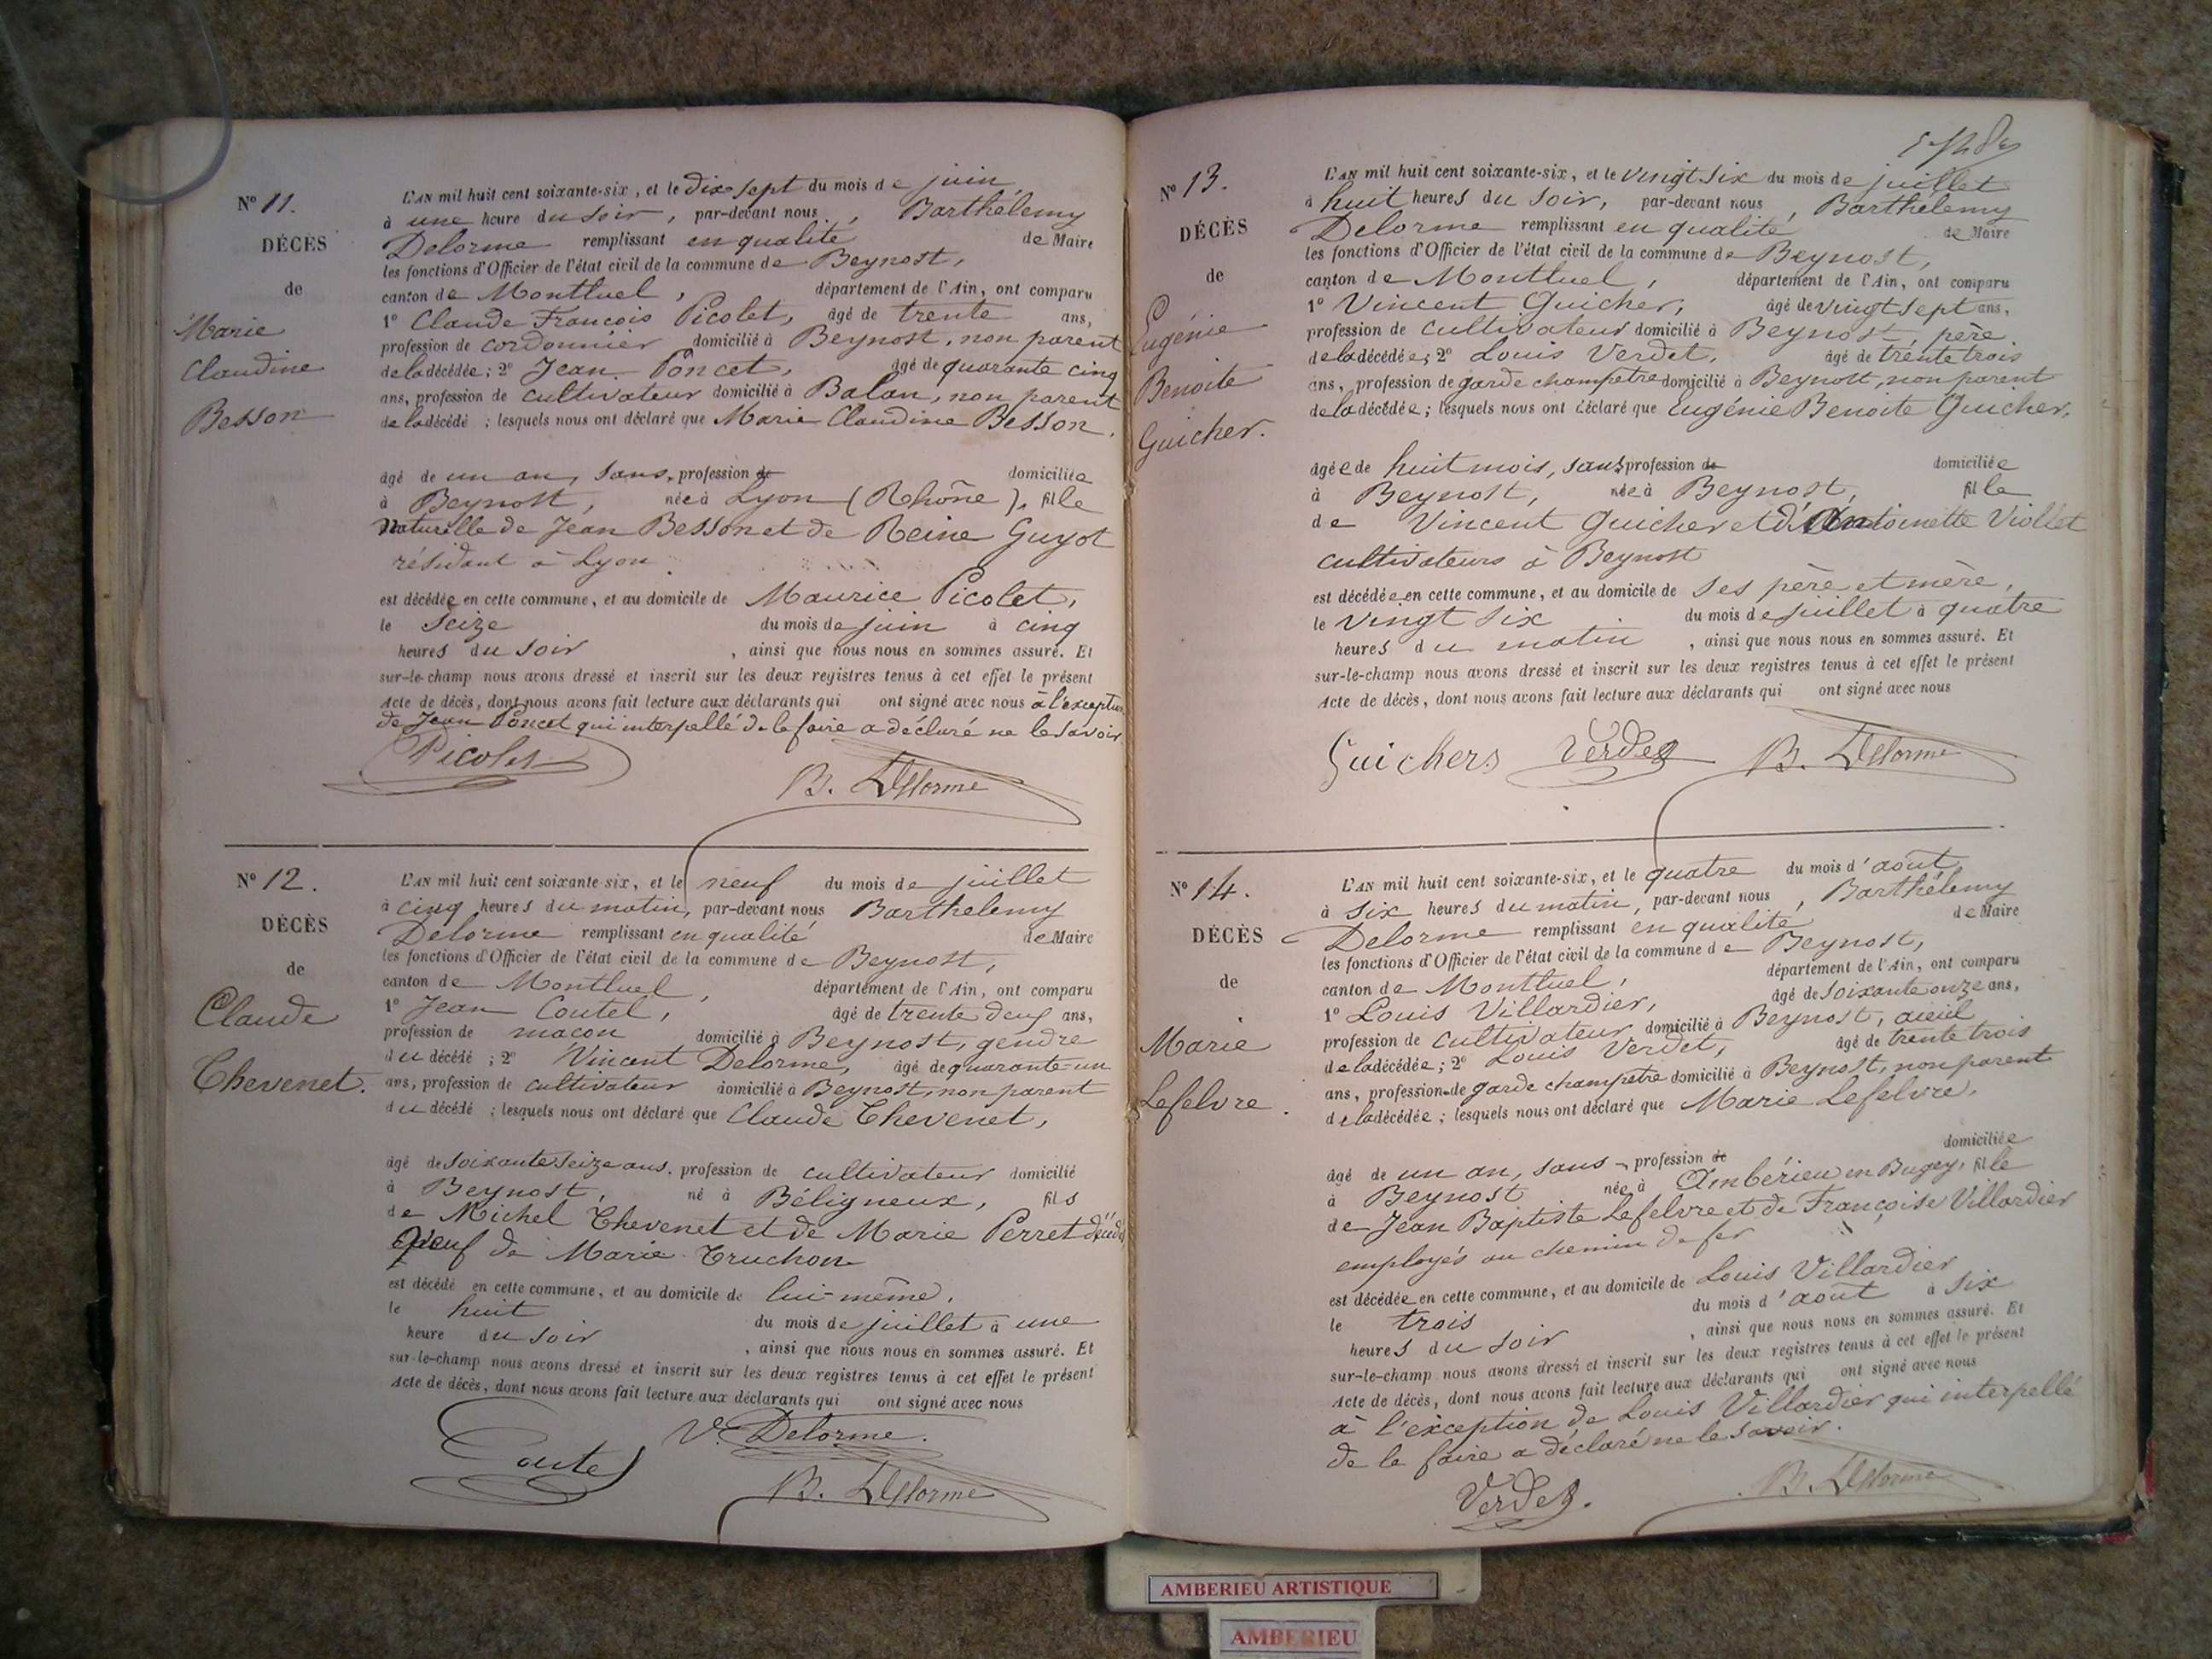 Nº 11.
DÉCÈS
de
Marie
Claudine
Besson
L'AN mil huit cent soixante-six, et le dix sept du mois de juin,
à une heure du soir, par-devant nous, Barthélemy
Delorme remplissant en qualité de Maire
les fonctions d'Officier de l'état civil de la commune de Beynost,
canton de Montluel, département de l'Ain, ont comparu
1º Claude François Picolet, âgé de trente ans,
profession de cordonnier domicilié à Beynost, non parent
de la décédée; 2º Jean Poncet, âgé de quarante cinq
ans, profession de cultivateur domicilié à Balan, non parent
de la décédé ; lesquels nous ont déclaré que Marie Claudine Besson,
âgé de un an, sans profession de domiciliée
à Beynost, née à Lyon (Rhône), fille
Naturelle de Jean Besson et de Reine Guyot
résidant à Lyon
est décédée en cette commune, et au domicile de Maurice Picolet,
le seize du mois de juin à cinq
heures du soir, ainsi que nous nous en sommes assuré. Et
sur-le-champ nous avons dressé et inscrit sur les deux registres tenus à cet effet le présent
Acte de décès, dont nous avons fait lecture aux déclarants qui ont signé avec nous à l'exception
de Jean Poncet qui interpellé de le faire a déclaré ne le savoir.
Picolet
B. Delorme
Nº 12.
DÉCÈS
de
Claude
Chevenet.
L'AN mil huit cent soixante-six, et le neuf du mois de juillet
à cinq heures du matin, par-devant nous Barthélemy
Delorme remplissant en qualité de Maire
les fonctions d'Officier de l'état civil de la commune de Beynost,
canton de Montluel, département de l'Ain, ont comparu
1º Jean Coutel, âgé de trente deux ans,
profession de maçon domicilié à Beynost, gendre
du décédé ; 2º Vincent Delorme, âgé de quarante-un
ans, profession de cultivateur domicilié à Beynost, non parent
du décédé ; lesquels nous ont déclaré que Claude Chevenet,
âgé de soixante seize ans, profession de cultivateur domicilié
à Beynost, né à Béligneux, fils
de Michel Chevenet et de Marie Perret décédés
veuf de Marie Truchon
est décédé en cette commune, et au domicile de lui-même,
le huit du mois de juillet à une
heure du soir, ainsi que nous nous en sommes assuré. Et
sur-le-champ nous avons dressé et inscrit sur les deux registres tenus à cet effet le présent
Acte de décès, dont nous avons fait lecture aux déclarants qui ont signé avec nous
Coutel V. Delorme.
B. Delorme
Nº 13.
DÉCÈS
de
Eugénie
Benoite
Guicher.
L'AN mil huit cent soixante-six, et le vingt six du mois de juillet
à huit heures du soir, par-devant nous, Barthélemy
Delorme remplissant en qualité de Maire
les fonctions d'Officier de l'état civil de la commune de Beynost,
canton de Montluel, département de l'Ain, ont comparu
1º Vincent Guicher, âgé de vingt sept ans,
profession de cultivateur domicilié à Beynost, père
de la décédée; 2º Louis Verdet, âgé de trente trois
ans, profession de garde champêtre domicilié à Beynost, non parent
de la décédée; lesquels nous ont déclaré que Eugénie Benoite Guicher,
âgée de huit mois, sans profession de domiciliée
à Beynost, née à Beynost, fille
de Vincent Guicher et d'Antoinette Viollet
cultivateurs à Beynost
est décédée en cette commune, et au domicile de ses père et mère,
le vingt six du mois de juillet à quatre
heures du matin, ainsi que nous nous en sommes assuré. Et
sur-le-champ nous avons dressé et inscrit sur les deux registres tenus à cet effet le présent
Acte de décès, dont nous avons fait lecture aux déclarants qui ont signé avec nous
Guichers Verdet B. Delorme
Nº 14.
DÉCÈS
de
Marie
Lefelvre.
L'AN mil huit cent soixante-six, et le quatre du mois d'août
à six heures du matin, par-devant nous, Barthélemy
Delorme remplissant en qualité de Maire
les fonctions d'Officier de l'état civil de la commune de Beynost,
canton de Montluel, département de l'Ain, ont comparu
1º Louis Villardier, âgé de soixante onze ans,
profession de cultivateur domicilié à Beynost, aïeul
de la décédée; 2º Louis Verdet, âgé de trente trois
ans, profession de garde champêtre domicilié à Beynost, non parent
de la décédée; lesquels nous ont déclaré que Marie Lefelvre,
âgé de un an, sans profession de domiciliée
à Beynost née à Ambérieu en Bugey, fille
de Jean Baptiste Lefelvre et de Françoise Villardier
employés au chemin de fer
est décédée en cette commune, et au domicile de Louis Villardier
le trois du mois d'août à six
heures du soir, ainsi que nous nous en sommes assuré. Et
sur-le-champ nous avons dressé et inscrit sur les deux registres tenus à cet effet le présent
Acte de décès, dont nous avons fait lecture aux déclarants qui ont signé avec nous
à l'exception de Louis Villardier qui interpellé
de le faire a déclaré ne le savoir.
Verdet.
B. Delorme
AMBERIEU ARTISTIQUE
AMBERIEU